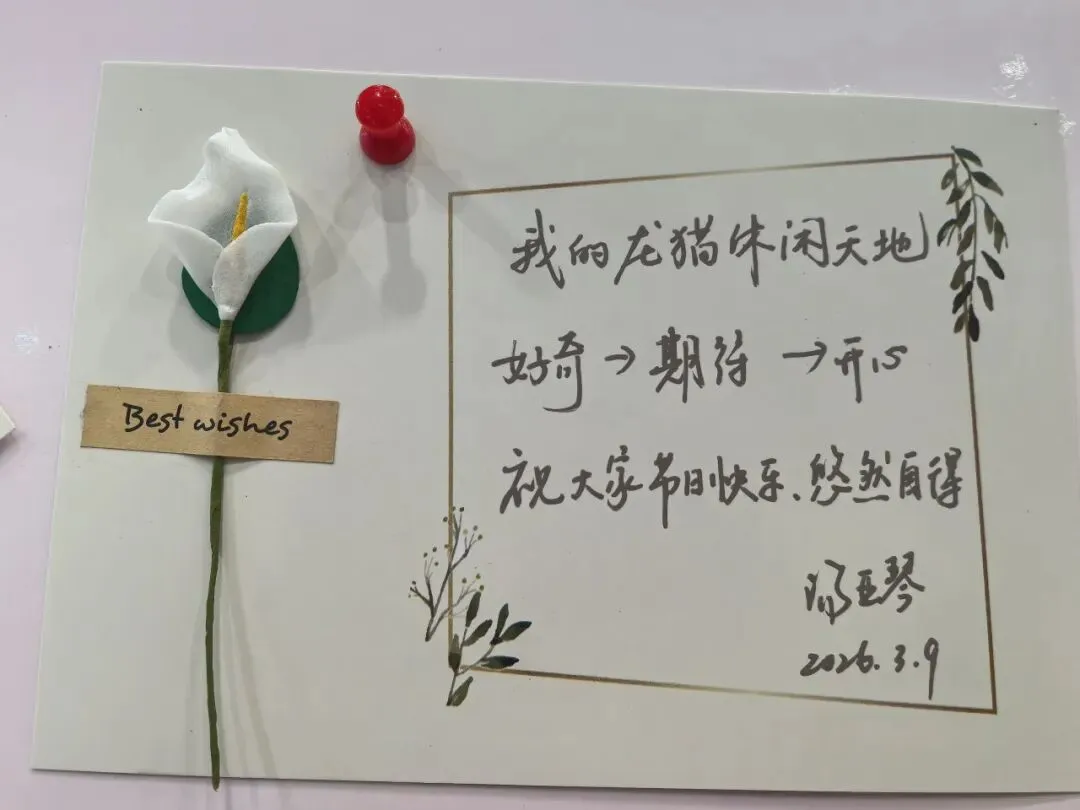 Best wishes
我的龙猫休闲天地
好奇→期待→开心
祝大家节日快乐、悠然自得
亚琴
2026.3.9